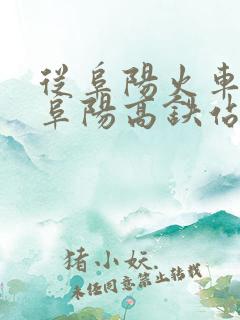 從阜陽火車
阜陽高鉄佔
猪小妖.
未任同意禁止转载